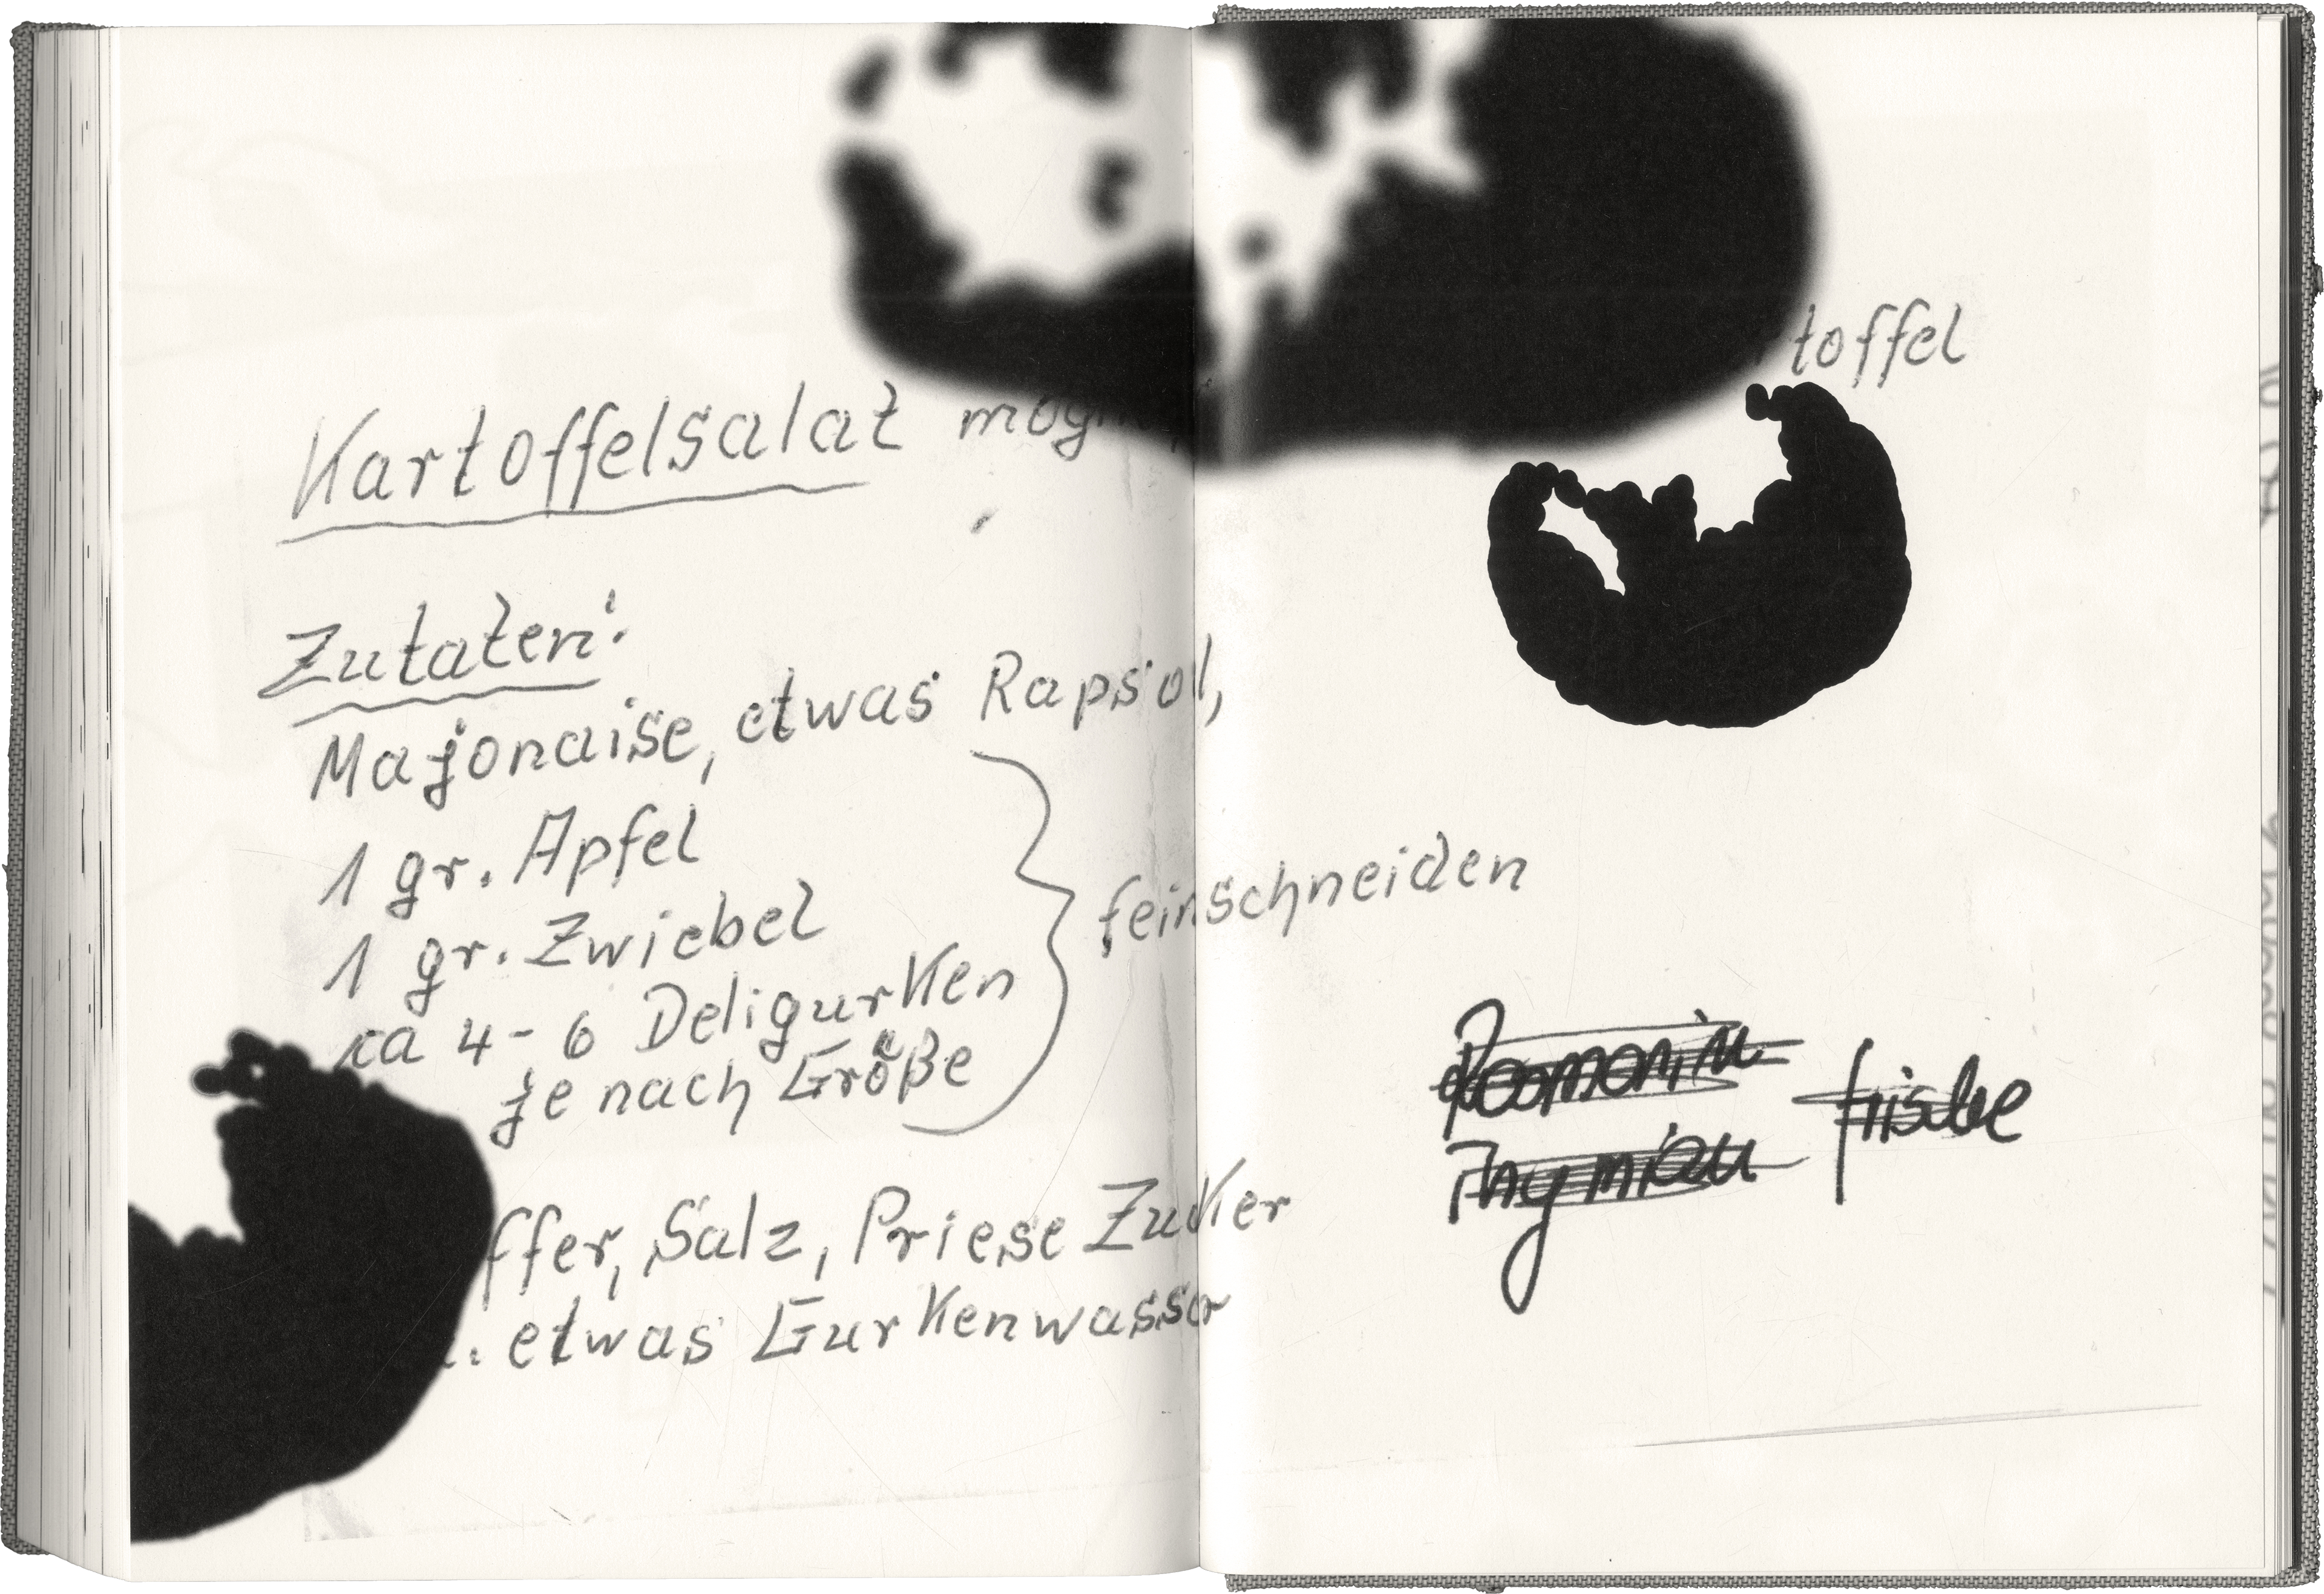 toffel
Kartoffelsalat mög
Zutaten:
Majonaise, etwas Rapsöl,
1 gr. Apfel
1 gr. Zwiebel
ca 4-6 Deligurken
je nach Größe
feinschneiden
ffer, Salz, Priese Zuker
. etwas Gurkenwasser
Rosmarin
frische
Thymian